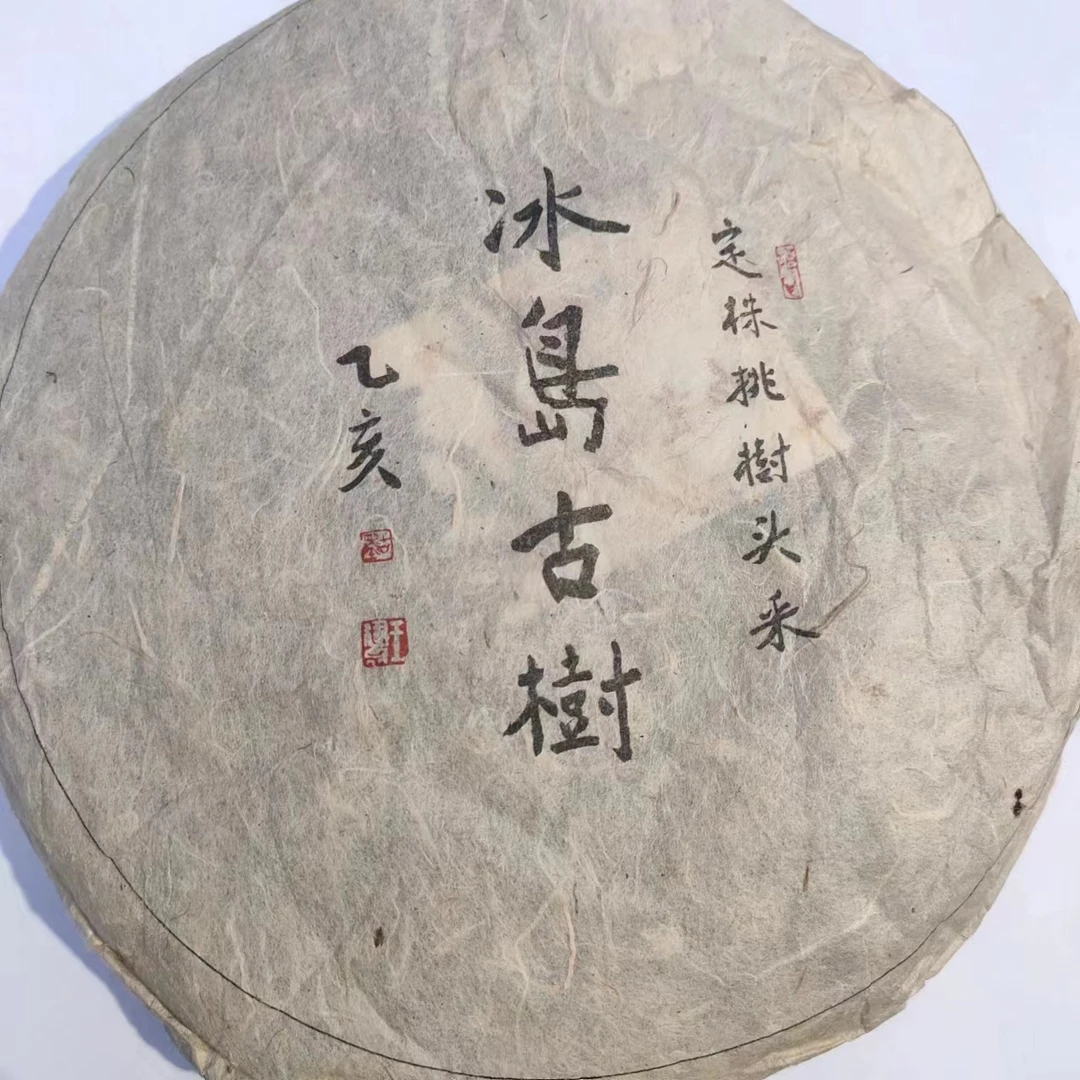 定株挑樹头采
冰島古樹
乙亥